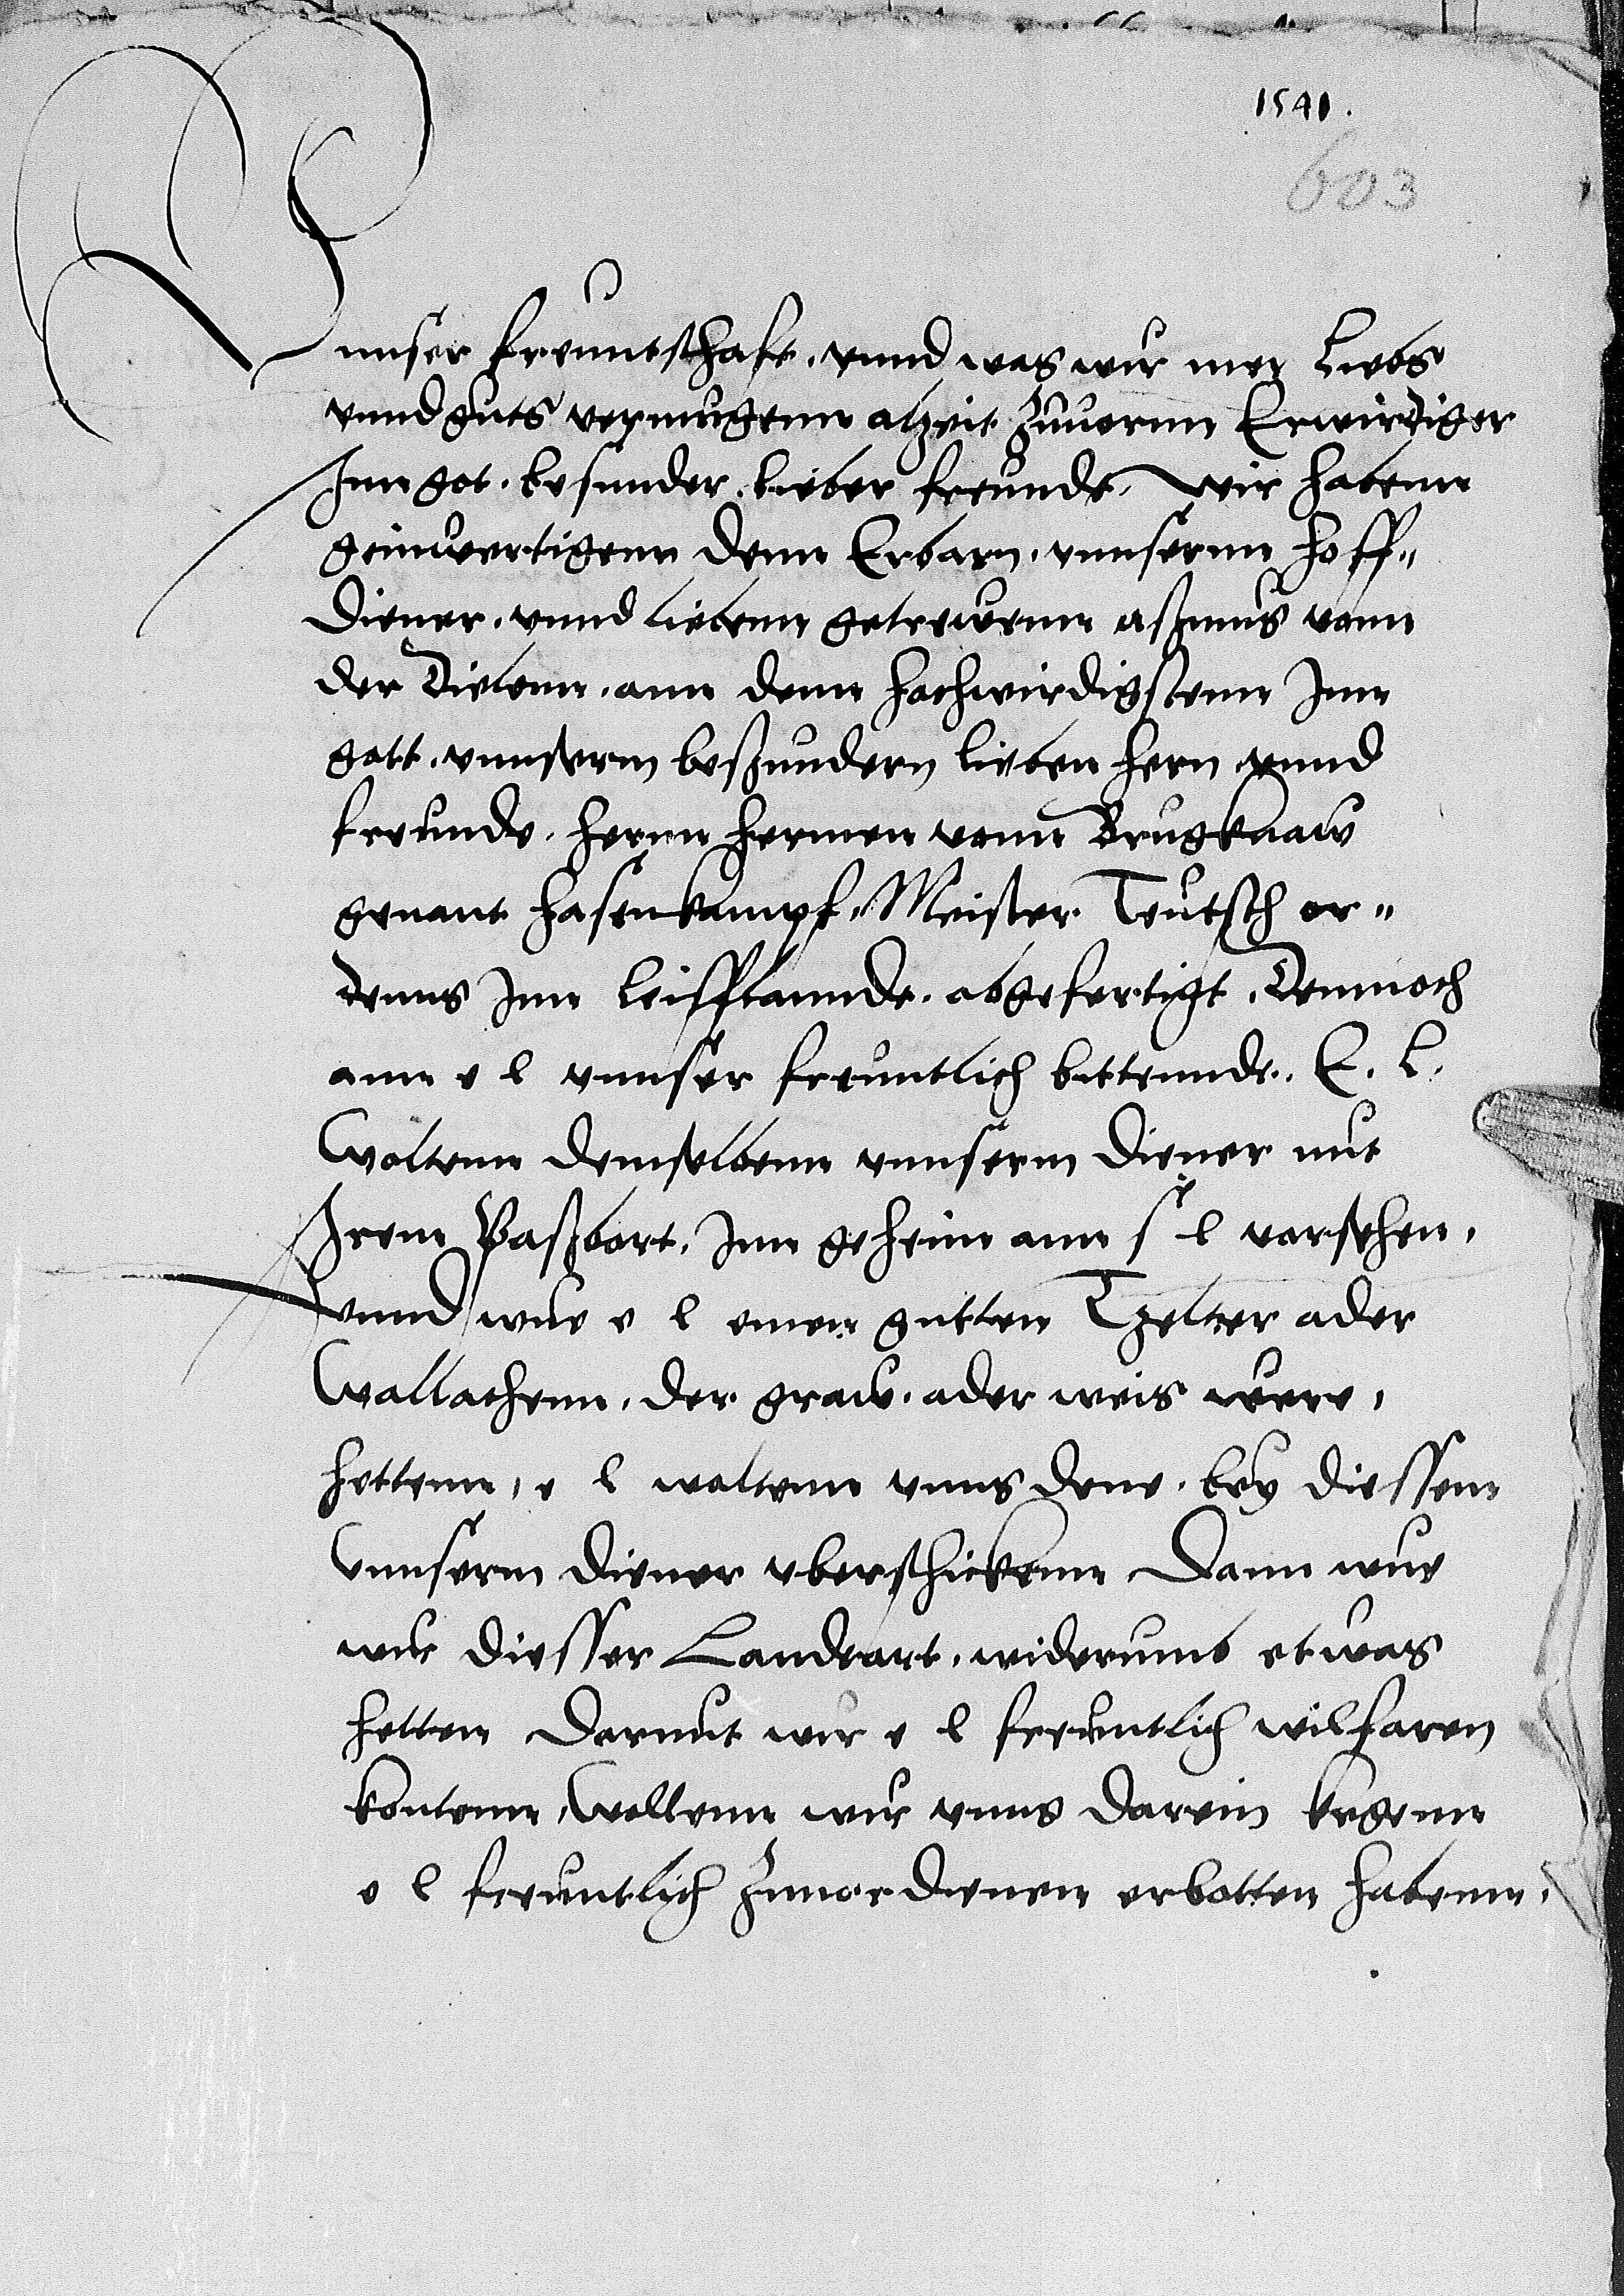 1541.
603
Vnnser freuntschaft. vnnd was wir mer Liebs
vnnd guts vermugenn alzeit zuuornn Erwirdiger
Inn got. besunder. lieber freunde. wir habenn
geinwertigenn denn Erbarn. vnnsernn hoff„
Diener. vnnd liebenn getrewenn aßmus vonn
der Dielenn. ann denn hochwirdigstenn Inn
gott. vnnserm beßundern lieben hern vnnd
freunde. hernn hermen vonn Brugknaw
genant hasenkampf. Meister Teutsch or„
denns Inn Leifflannde. abgefertigt. Demnoch
ann e l vnnser freuntlich bittennde. E. L.
Woltenn demselbenn vnnserm Diener mit
Irem Paßbort. Inn geheim ann s l vorsehen.
vnnd wue e l einen gutten Tzelter ader
Wallachenn. der graw. ader weis were.
hettenn, e l woltenn vnns dene. bey diessem
Vnnserm Diener vberschickenn Dann wue
wir diesser Landeart. widerumb etwas
hetten Darmit wir e l freuntlich wilfaren
kontenn. Wollenn wir vnns darein kegenn
e l freuntlich zuuordienen erbotten habenn.